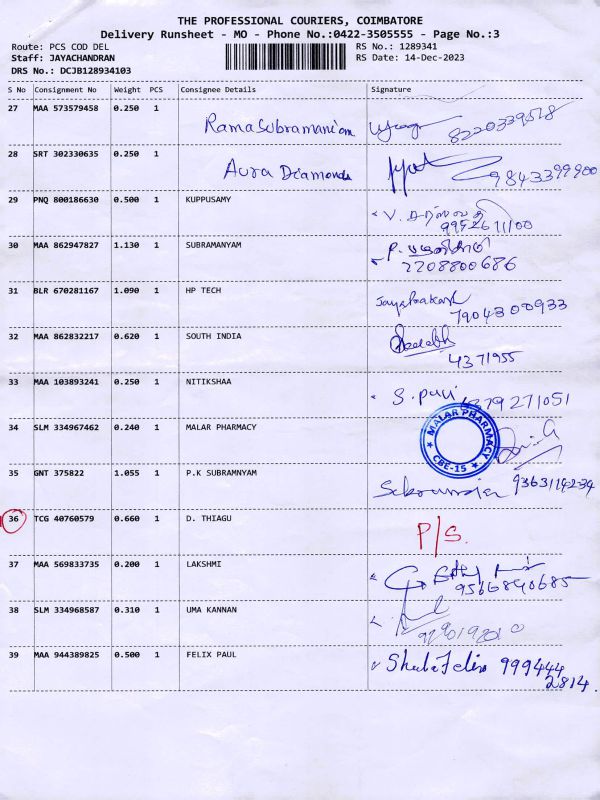 THE PROFESSIONAL COURIERS, COIMBATORE
Delivery Runsheet - MO - Phone No.:0422-3505555 - Page No.:3
Route: PCS COD DEL
Staff: JAYACHANDRAN
DRS No.: DCJB128934103
RS No.: 1289341
RS Date: 14-Dec-2023
S No Consignment No Weight PCS Consignee Details Signature
27 MAA 573579458 0.250 1 Ramasubramaniam 8220339518
28 SRT 302330635 0.250 1 Aura Diamonds 9843399900
29 PNQ 800186630 0.500 1 KUPPUSAMY V.
9952671100
30 MAA 862947827 1.130 1 SUBRAMANYAM P.
2208800686
31 BLR 670281167 1.090 1 HP TECH Jayaprakash
7904300933
32 MAA 862832217 0.620 1 SOUTH INDIA
4371955
33 MAA 103893241 0.250 1 NITIKSHAA S. pavi 6379271051
34 SLM 334967462 0.240 1 MALAR PHARMACY MALAR PHARMACY
CBE-15
35 GNT 375822 1.055 1 P.K SUBRAMNYAM 9363114234
36 TCG 40760579 0.660 1 D. THIAGU P/S.
37 MAA 569833735 0.200 1 LAKSHMI
9566840685
38 SLM 334968587 0.310 1 UMA KANNAN
39 MAA 944389825 0.500 1 FELIX PAUL Sheela Felix 999444
2814.